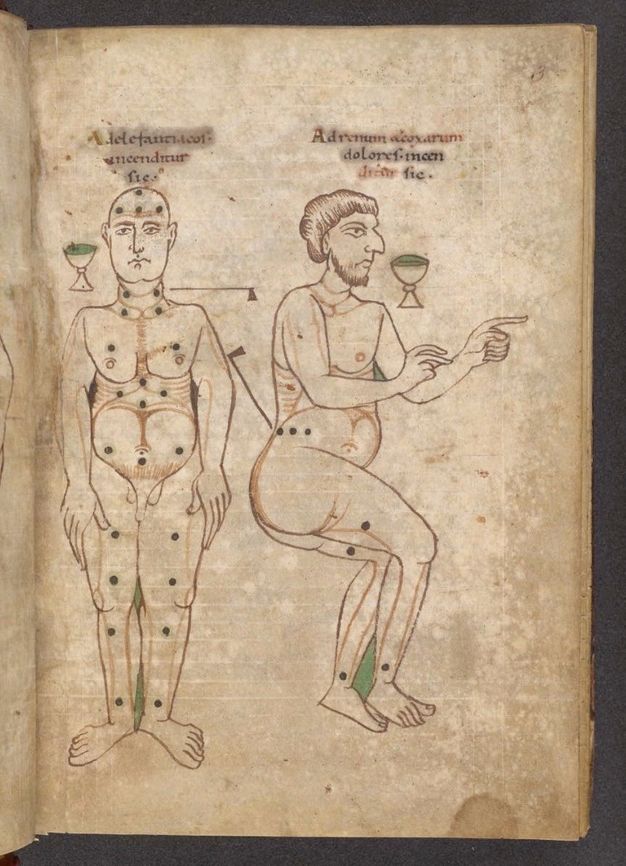 Adelefantiacos·
incenditur
sic·
Adrenum &coxarum
dolores·incen
ditur sic·